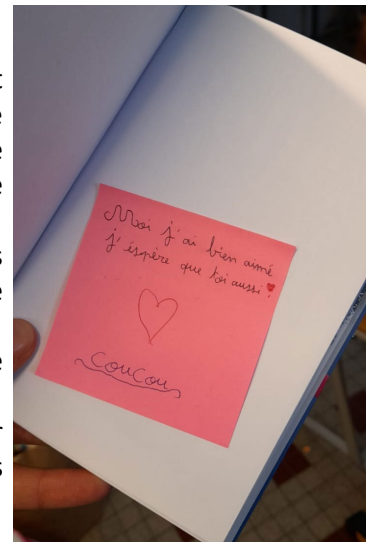 Moi j'ai bien aimé
j'éspère que toi aussi !
COUCOU